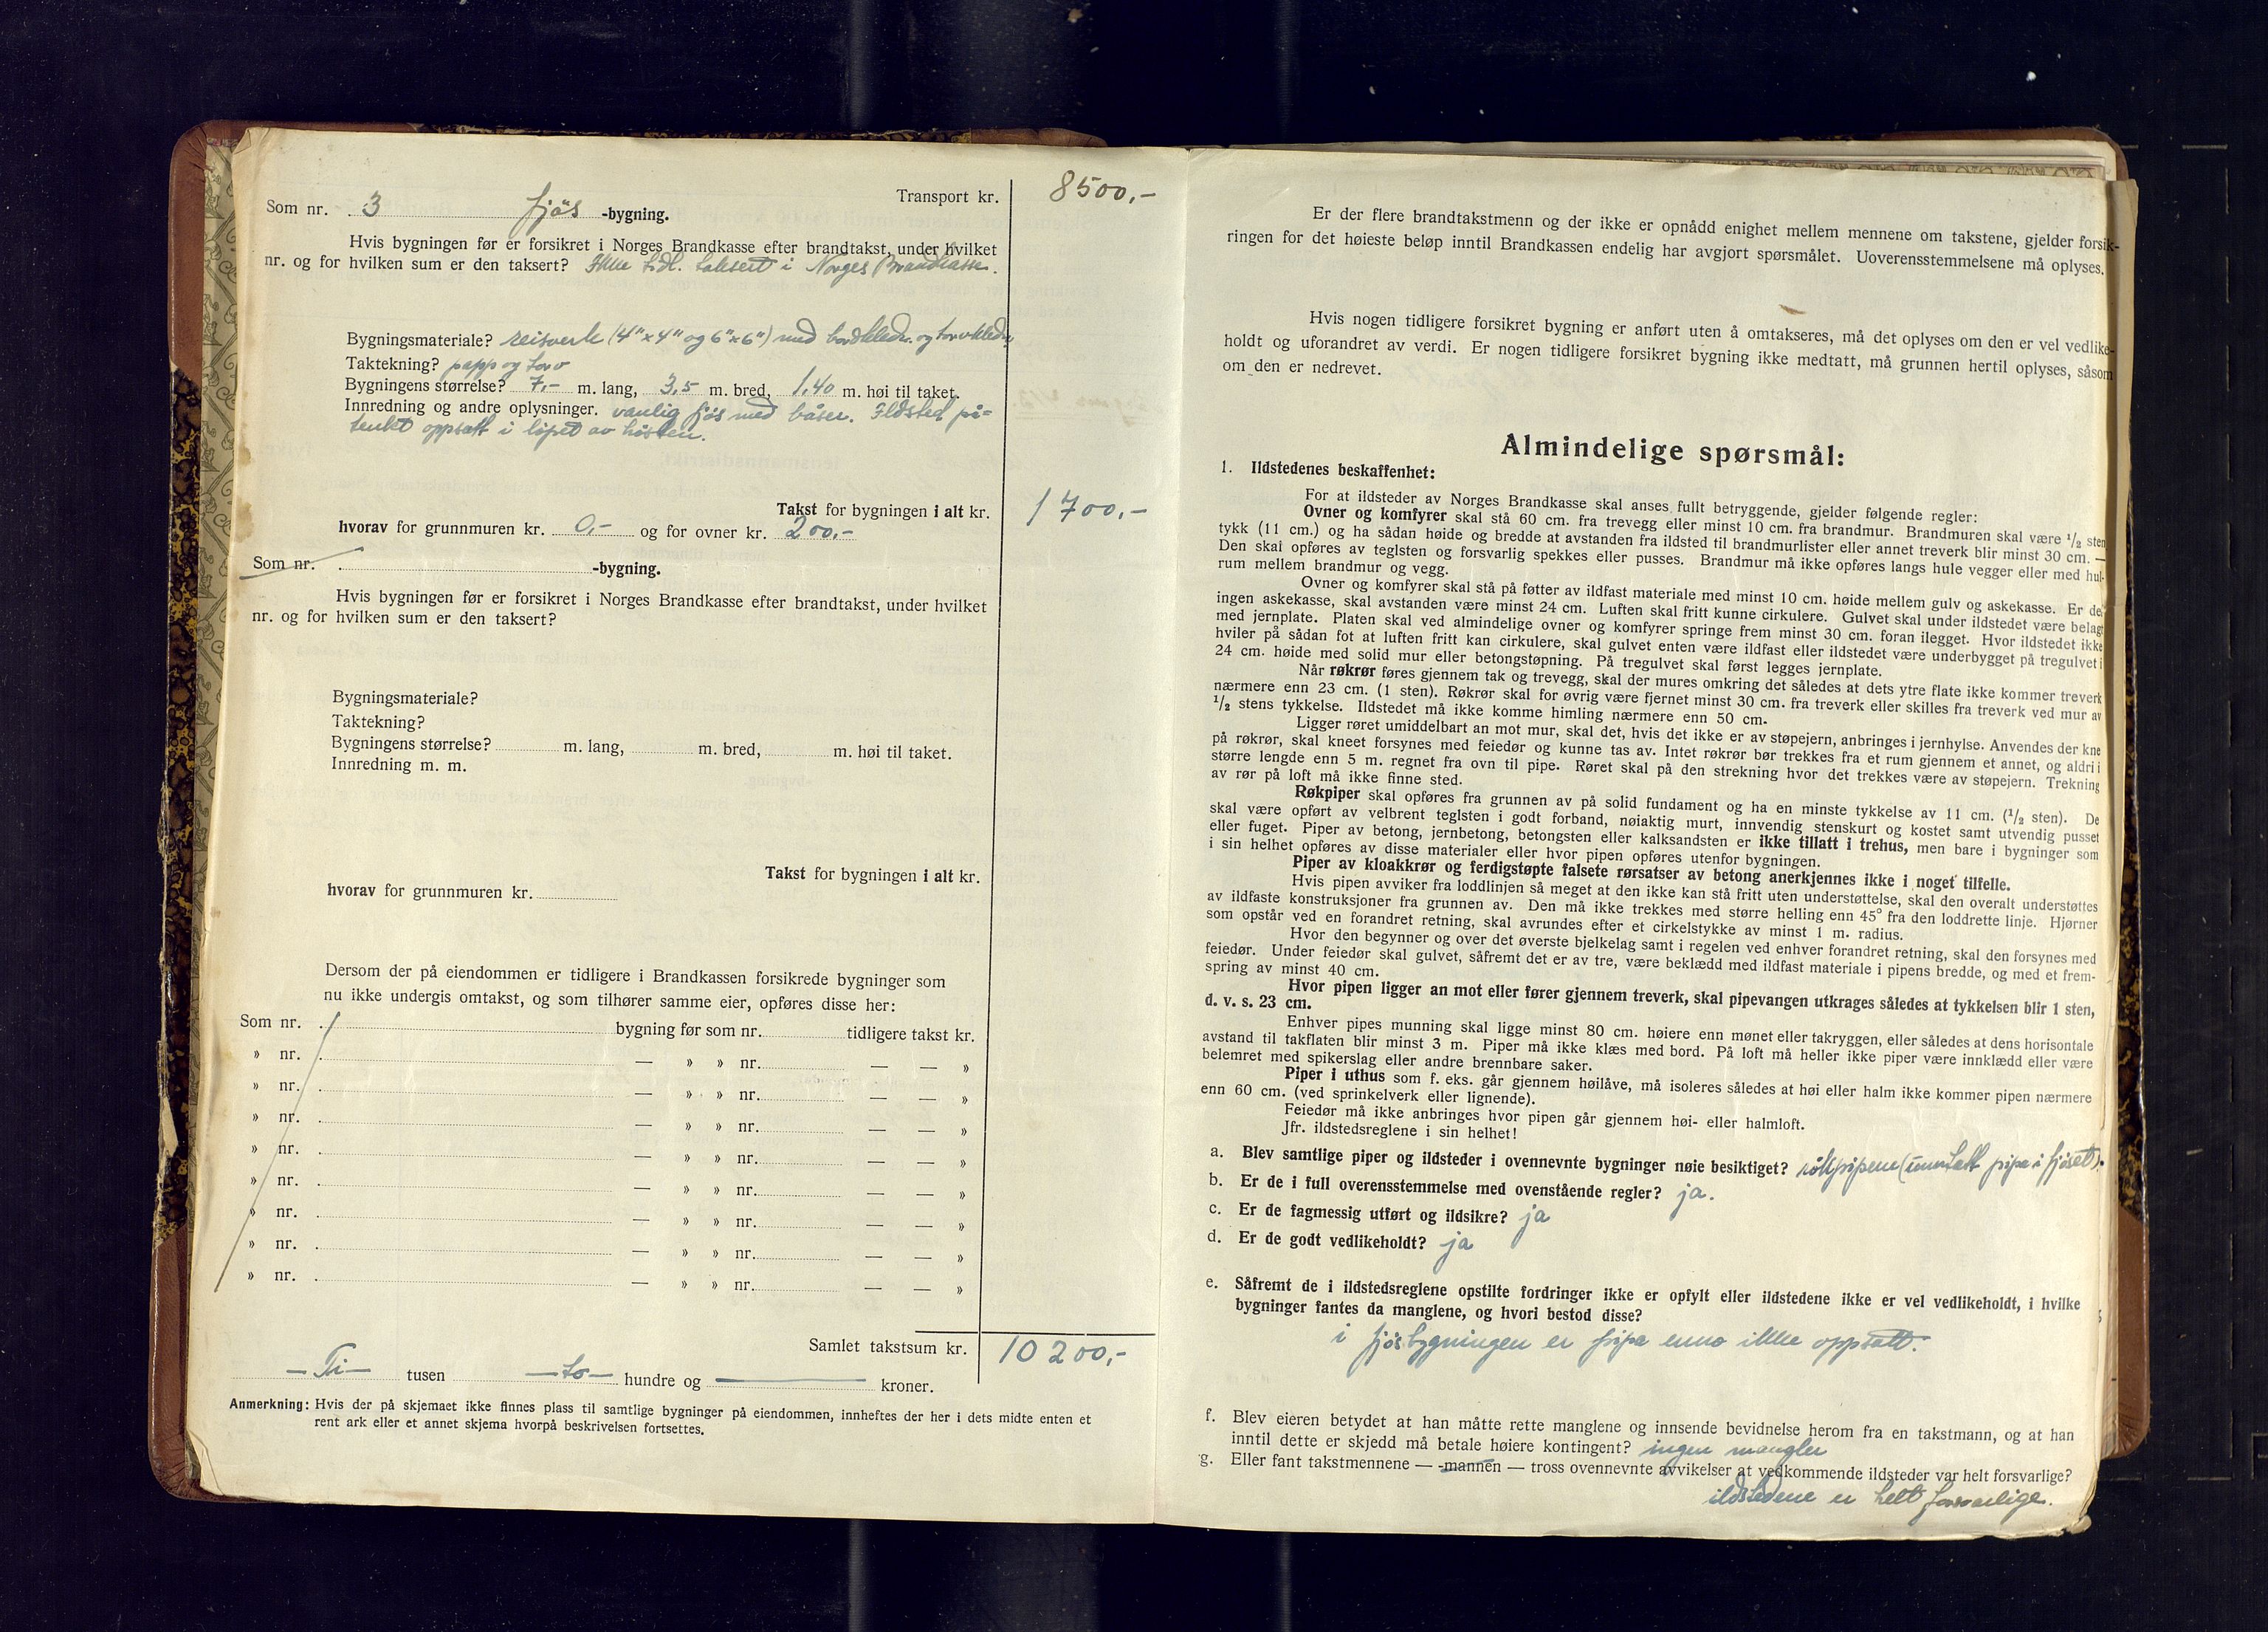 Transport kr. 8500,-
Som nr. 3 fjøs -bygning.
Hvis bygningen før er forsikret i Norges Brandkasse efter brandtakst, under hvilket
nr. og for hvilken sum er den taksert? Ikke tidl. taksert i Norges Brandkasse.
Bygningsmateriale? reisverk (4"x4" og 6"x6") med bordkledn. og torvkledn.
Taktekning? papp og torv
Bygningens størrelse? 7,- m. lang, 3,5 m. bred, 1,40 m. høi til taket.
Innredning og andre oplysninger. vanlig fjøs med båser. Ildsted på-
tenkt oppsatt i løpet av høsten.
Takst for bygningen i alt kr. 1700,-
hvorav for grunnmuren kr. 0,- og for ovner kr. 200,-
Som nr. -bygning.
Hvis bygningen før er forsikret i Norges Brandkasse efter brandtakst, under hvilket
nr. og for hvilken sum er den taksert?
Bygningsmateriale?
Taktekning?
Bygningens størrelse? m. lang, m. bred, m. høi til taket.
Innredning m. m.
Takst for bygningen i alt kr.
hvorav for grunnmuren kr.
Dersom der på eiendommen er tidligere i Brandkassen forsikrede bygninger som
nu ikke undergis omtakst, og som tilhører samme eier, opføres disse her:
Som nr. bygning før som nr. tidligere takst kr.
» nr. — » » nr. — — »
» nr. — » » nr. — — »
» nr. — » » nr. — — »
» nr. — » » nr. — — »
» nr. — » » nr. — — »
» nr. — » » nr. — — »
» nr. — » » nr. — — »
» nr. — » » nr. — — »
Samlet takstsum kr. 10200,-
—Ti— tusen —to— hundre og — kroner.
Anmerkning: Hvis der på skjemaet ikke finnes plass til samtlige bygninger på eiendommen, innheftes der her i dets midte enten et
rent ark eller et annet skjema hvorpå beskrivelsen fortsettes.
Er der flere brandtakstmenn og der ikke er opnådd enighet mellem mennene om takstene, gjelder forsik-
ringen for det høieste beløp inntil Brandkassen endelig har avgjort spørsmålet. Uoverensstemmelsene må oplyses.
Hvis nogen tidligere forsikret bygning er anført uten å omtakseres, må det oplyses om den er vel vedlike-
holdt og uforandret av verdi. Er nogen tidligere forsikret bygning ikke medtatt, må grunnen hertil oplyses, såsom
om den er nedrevet.
Almindelige spørsmål:
1. Ildstedenes beskaffenhet:
For at ildsteder av Norges Brandkasse skal anses fullt betryggende, gjelder følgende regler:
Ovner og komfyrer skal stå 60 cm. fra trevegg eller minst 10 cm. fra brandmur. Brandmuren skal være 1/2 sten
tykk (11 cm.) og ha sådan høide og bredde at avstanden fra ildsted til brandmurlister eller annet treverk blir minst 30 cm. —
Den skal opføres av teglsten og forsvarlig spekkes eller pusses. Brandmur må ikke opføres langs hule vegger eller med hul-
rum mellem brandmur og vegg.
Ovner og komfyrer skal stå på føtter av ildfast materiale med minst 10 cm. høide mellem gulv og askekasse. Er der
ingen askekasse, skal avstanden være minst 24 cm. Luften skal fritt kunne cirkulere. Gulvet skal under ildstedet være belagt
med jernplate. Platen skal ved almindelige ovner og komfyrer springe frem minst 30 cm. foran ilegget. Hvor ildstedet ikke
hviler på sådan fot at luften fritt kan cirkulere, skal gulvet enten være ildfast eller ildstedet være underbygget på tregulvet i
24 cm. høide med solid mur eller betongstøpning. På tregulvet skal først legges jernplate.
Når røkrør føres gjennem tak og trevegg, skal der mures omkring det således at dets ytre flate ikke kommer treverk
nærmere enn 23 cm. (1 sten). Røkrør skal for øvrig være fjernet minst 30 cm. fra treverk eller skilles fra treverk ved mur av
1/2 stens tykkelse. Ildstedet må ikke komme himling nærmere enn 50 cm.
Ligger røret umiddelbart an mot mur, skal det, hvis det ikke er av støpejern, anbringes i jernhylse. Anvendes der kne
på røkrør, skal kneet forsynes med feiedør og kunne tas av. Intet røkrør bør trekkes fra et rum gjennem et annet, og aldri i
større lengde enn 5 m. regnet fra ovn til pipe. Røret skal på den strekning hvor det trekkes være av støpejern. Trekning
av rør på loft må ikke finne sted.
Røkpiper skal opføres fra grunnen av på solid fundament og ha en minste tykkelse av 11 cm. (1/2 sten). De
skal være opført av velbrent teglsten i godt forband, nøiaktig murt, innvendig stenskurt og kostet samt utvendig pusset
eller fuget. Piper av betong, jernbetong, betongsten eller kalksandsten er ikke tillatt i trehus, men bare i bygninger som
i sin helhet opføres av disse materialer eller hvor pipen opføres utenfor bygningen.
Piper av kloakkrør og ferdigstøpte falsete rørsatser av betong anerkjennes ikke i noget tilfelle.
Hvis pipen avviker fra loddlinjen så meget at den ikke kan stå fritt uten understøttelse, skal den overalt understøttes
av ildfaste konstruksjoner fra grunnen av. Den må ikke trekkes med større helling enn 45° fra den loddrette linje. Hjørner
som opstår ved en forandret retning, skal avrundes efter et cirkelstykke av minst 1 m. radius.
Hvor den begynner og over det øverste bjelkelag samt i regelen ved enhver forandret retning, skal den forsynes med
feiedør. Under feiedør skal gulvet, såfremt det er av tre, være beklædd med ildfast materiale i pipens bredde, og med et frem-
spring av minst 40 cm.
Hvor pipen ligger an mot eller fører gjennem treverk, skal pipevangen utkrages således at tykkelsen blir 1 sten,
d. v. s. 23 cm.
Enhver pipes munning skal ligge minst 80 cm. høiere enn mønet eller takryggen, eller således at dens horisontale
avstand til takflaten blir minst 3 m. Piper må ikke klæs med bord. På loft må heller ikke piper være innklædd eller være
belemret med spikerslag eller andre brennbare saker.
Piper i uthus som f. eks. går gjennem høilåve, må isoleres således at høi eller halm ikke kommer pipen nærmere
enn 60 cm. (ved sprinkelverk eller lignende).
Feiedør må ikke anbringes hvor pipen går gjennem høi- eller halmloft.
Jfr. ildstedsreglene i sin helhet!
a. Blev samtlige piper og ildsteder i ovennevnte bygninger nøie besiktiget? røkpipene (unntatt pipa i fjøset).
b. Er de i full overensstemmelse med ovenstående regler? ja.
c. Er de fagmessig utført og ildsikre? ja
d. Er de godt vedlikeholdt? ja
e. Såfremt de i ildstedsreglene opstilte fordringer ikke er opfylt eller ildstedene ikke er vel vedlikeholdt, i hvilke
bygninger fantes da manglene, og hvori bestod disse?
i fjøsbygningen er pipa enno ikke oppsatt.
f. Blev eieren betydet at han måtte rette manglene og innsende bevidnelse herom fra en takstmann, og at han
inntil dette er skjedd må betale høiere kontingent? ingen mangler
g. Eller fant takstmennene — -mannen — tross ovennevnte avvikelser at vedkommende ildsteder var helt forsvarlige?
ildstedene er helt forsvarlige.